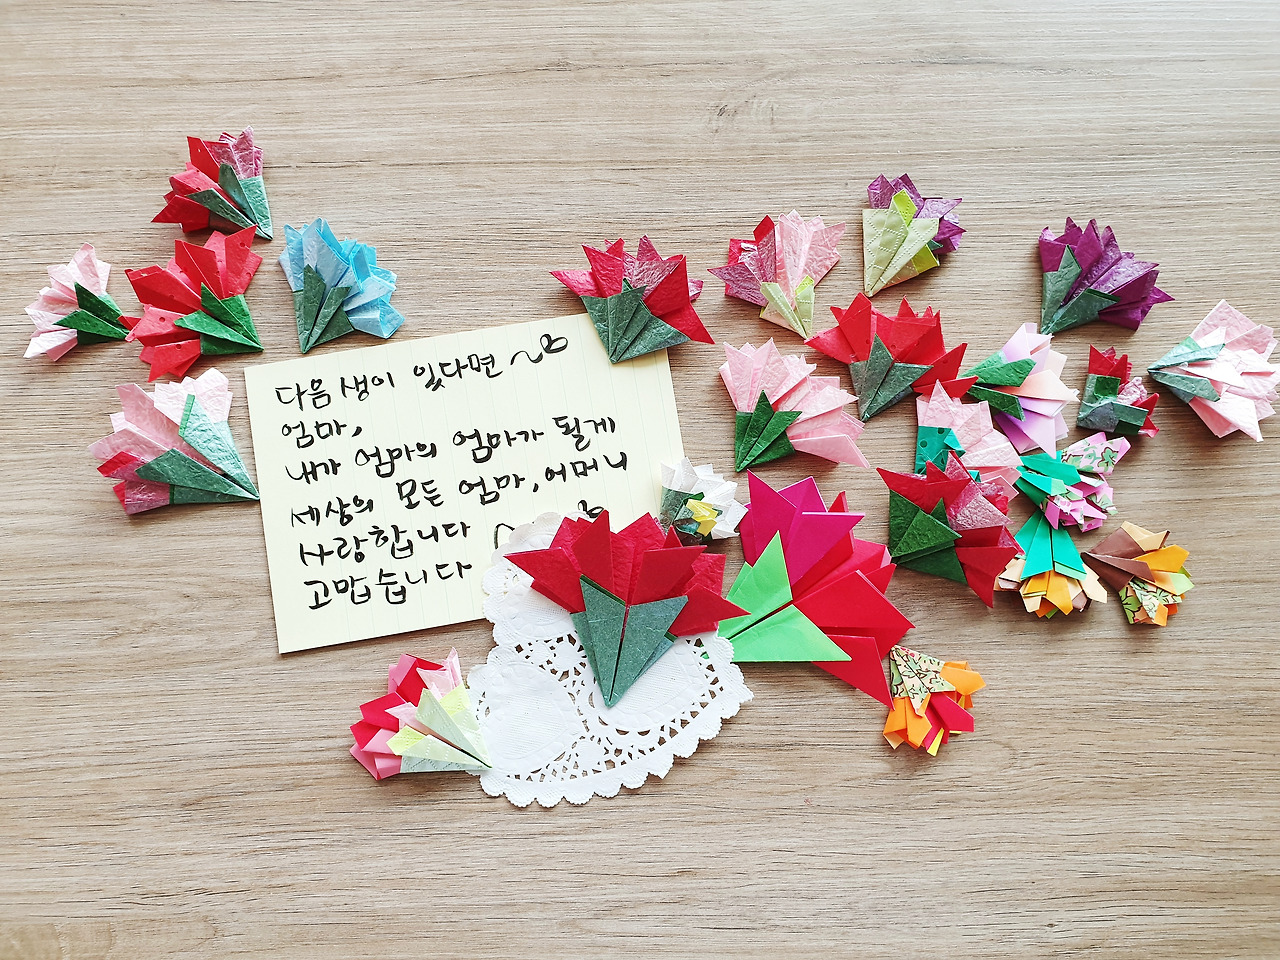 다음 생이 있다면 ~♡
엄마,
내가 엄마의 엄마가 될게
세상의 모든 엄마, 어머니
사랑합니다
고맙습니다